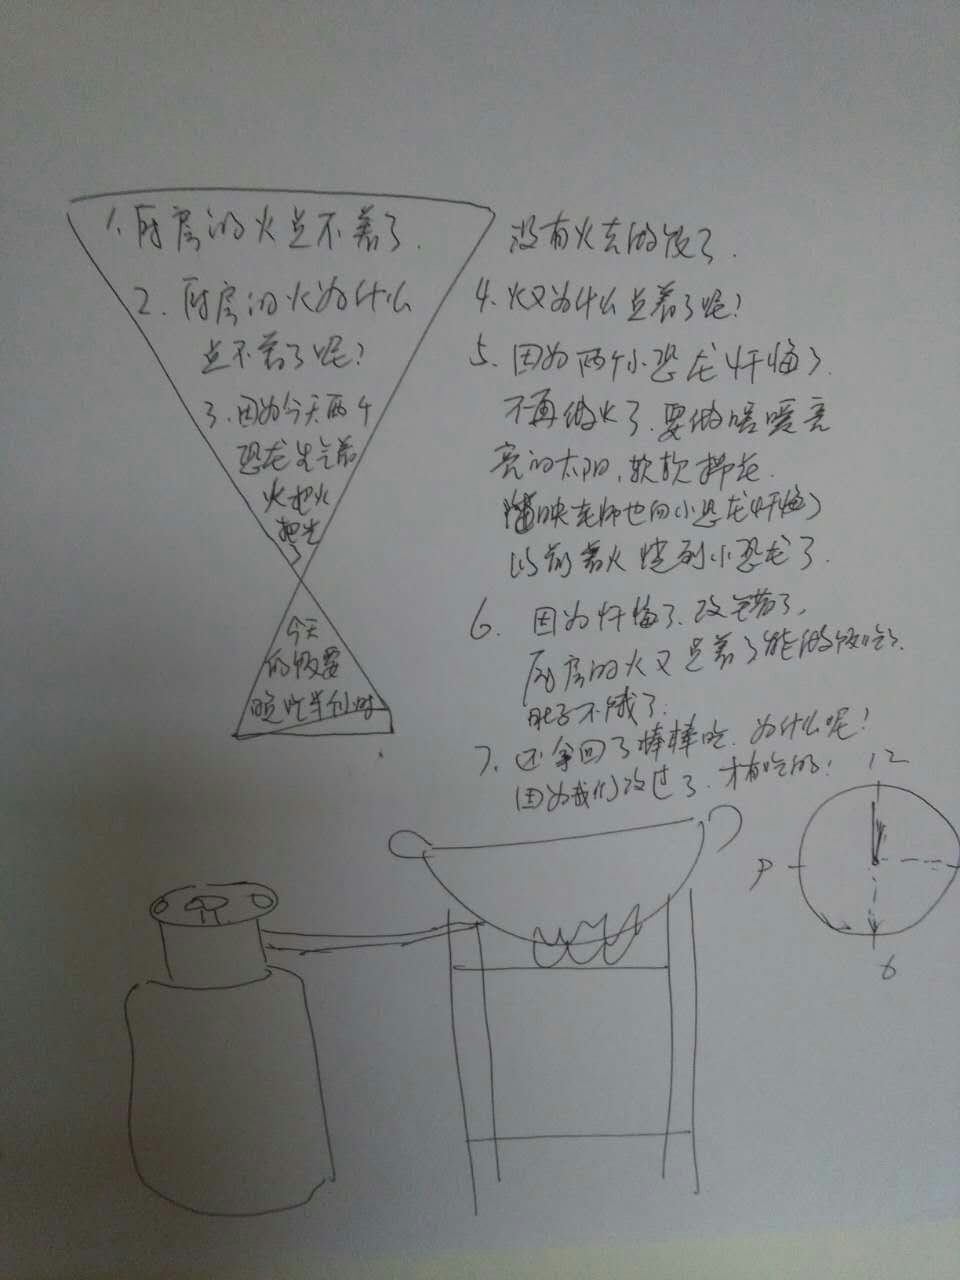 1. 厨房的火点不着了.
2. 厨房的火为什么
点不着了呢?
3. 因为今天两个
恐龙生气着
火把火
把光
了
今天
的饭要
晚吃半小时
没有火去做饭了.
4. 火又为什么点着了呢?
5. 因为两个小恐龙忏悔了.
不再做火了. 要做暖暖亮
亮的太阳, 软软棉花.
映老师也向小恐龙忏悔了
以前着火烧到小恐龙了.
6. 因为忏悔了. 改错了,
厨房的火又点着了能做饭吃了.
肚子不饿了.
7. 还拿回了棒棒吃. 为什么呢?
因为我们改过了. 才有吃的!
12
9
6